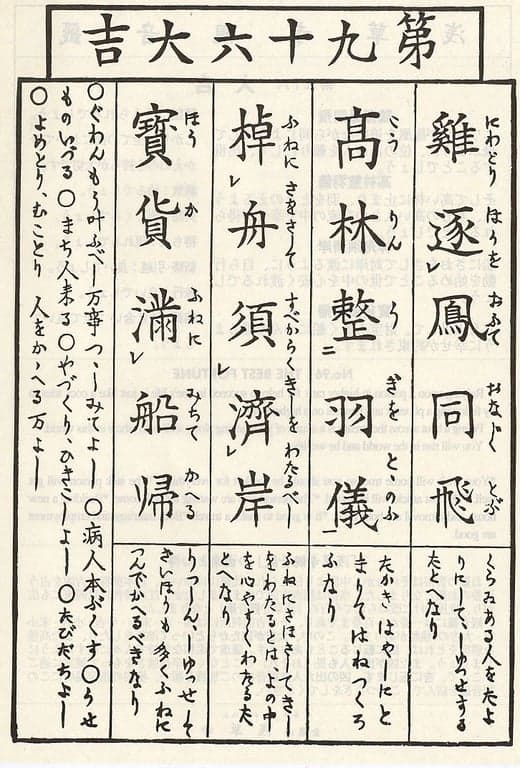 第九十六大吉
にわとり ほうを おふて おなじく とぶ
雞逐レ鳳同飛
くらゐある人をたよ
りにして しゆつせする
たとへなり
こうりん うぎを とゝのふ
髙林整二羽儀一
たかきはやしにと
まりてはねづくろ
ふなり
ふねに さをさして すべからくきしを わたるべし
棹レ舟須レ濟レ岸
ふねにさほさしてきし
をわたるとはよの中
を心やすくわたるた
とへなり
ほうか ふねに みちて かゑる
寳貨滿レ船帰
りつしんしゆつせして
さいほうも多くふねに
つんでかへるべきなり
○ぐわんもう叶ふべし 万事つゝしみてよし ○病人本ぶくす○うせ
ものいづる○まち人来る○やづくりひきこしよし ○たびだちよし
○よめとり、むことり 人をかゝへる万よし